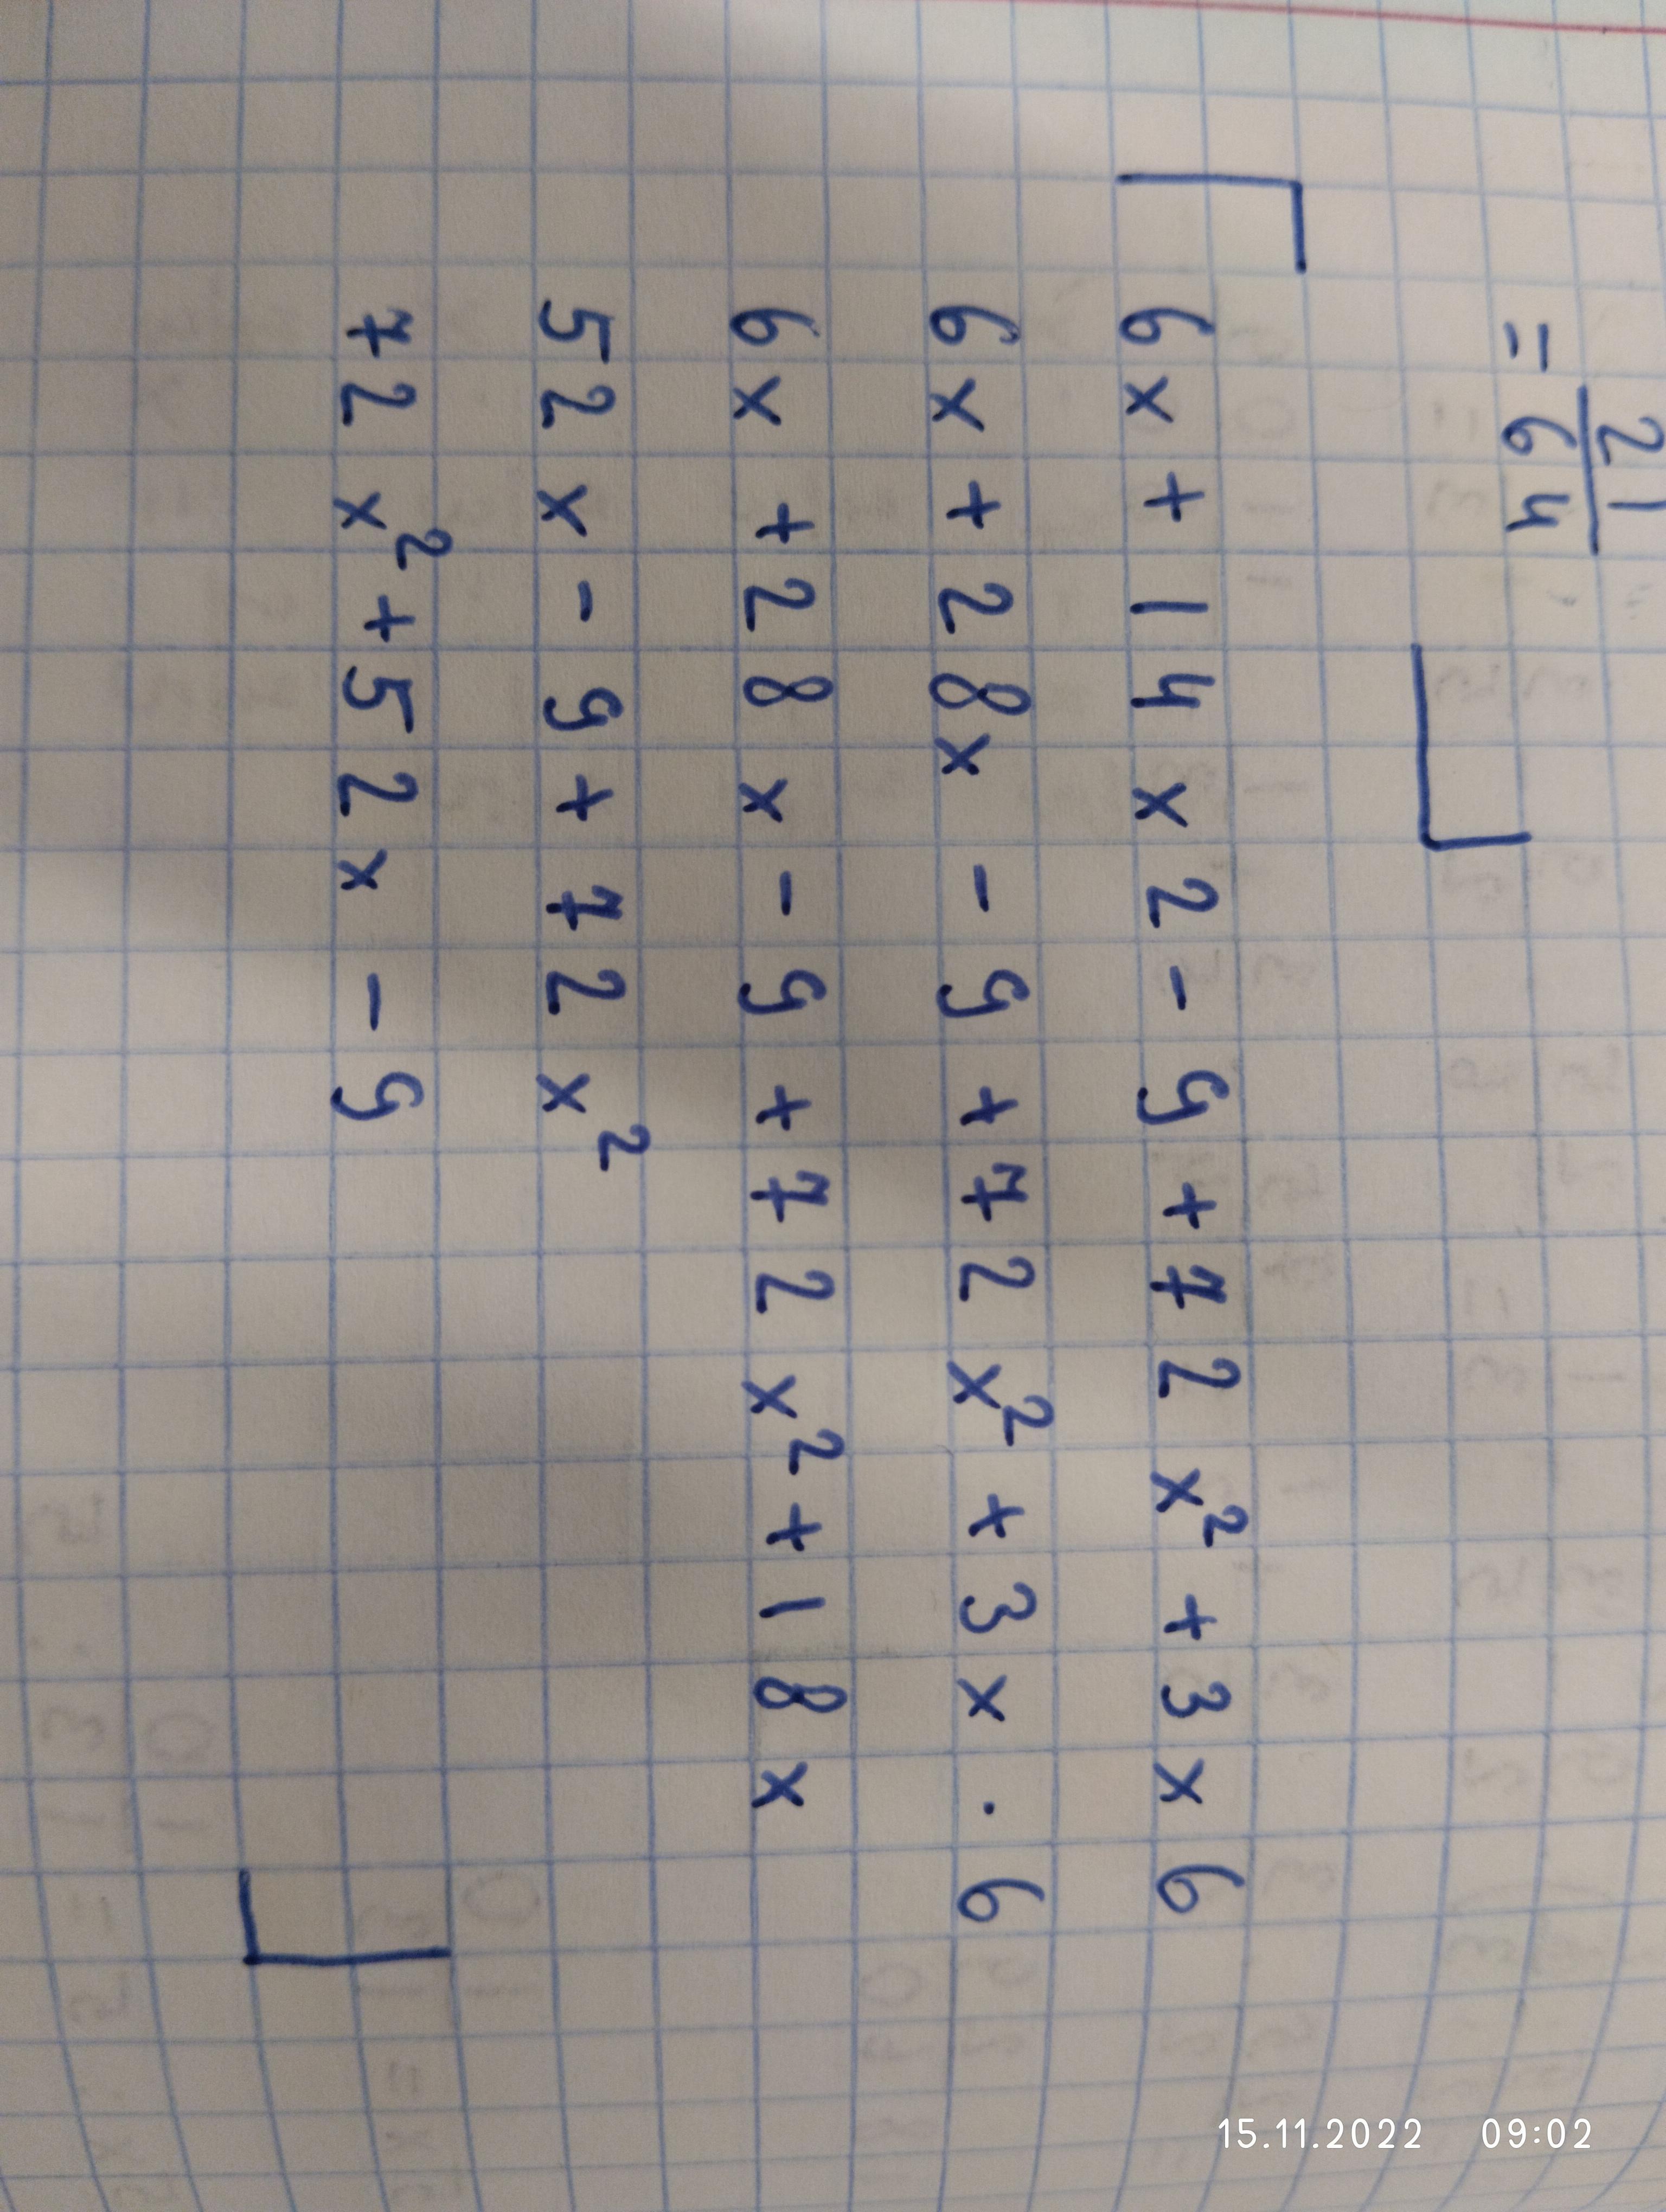 21
= 64
6x + 14x2 - 9 + 72x² + 3x6
6x + 28x - 9 + 72x² + 3x · 6
6x + 28x - 9 + 72x² + 18x
52x - 9 + 72x²
72x² + 52x - 9
15.11.2022 09:02